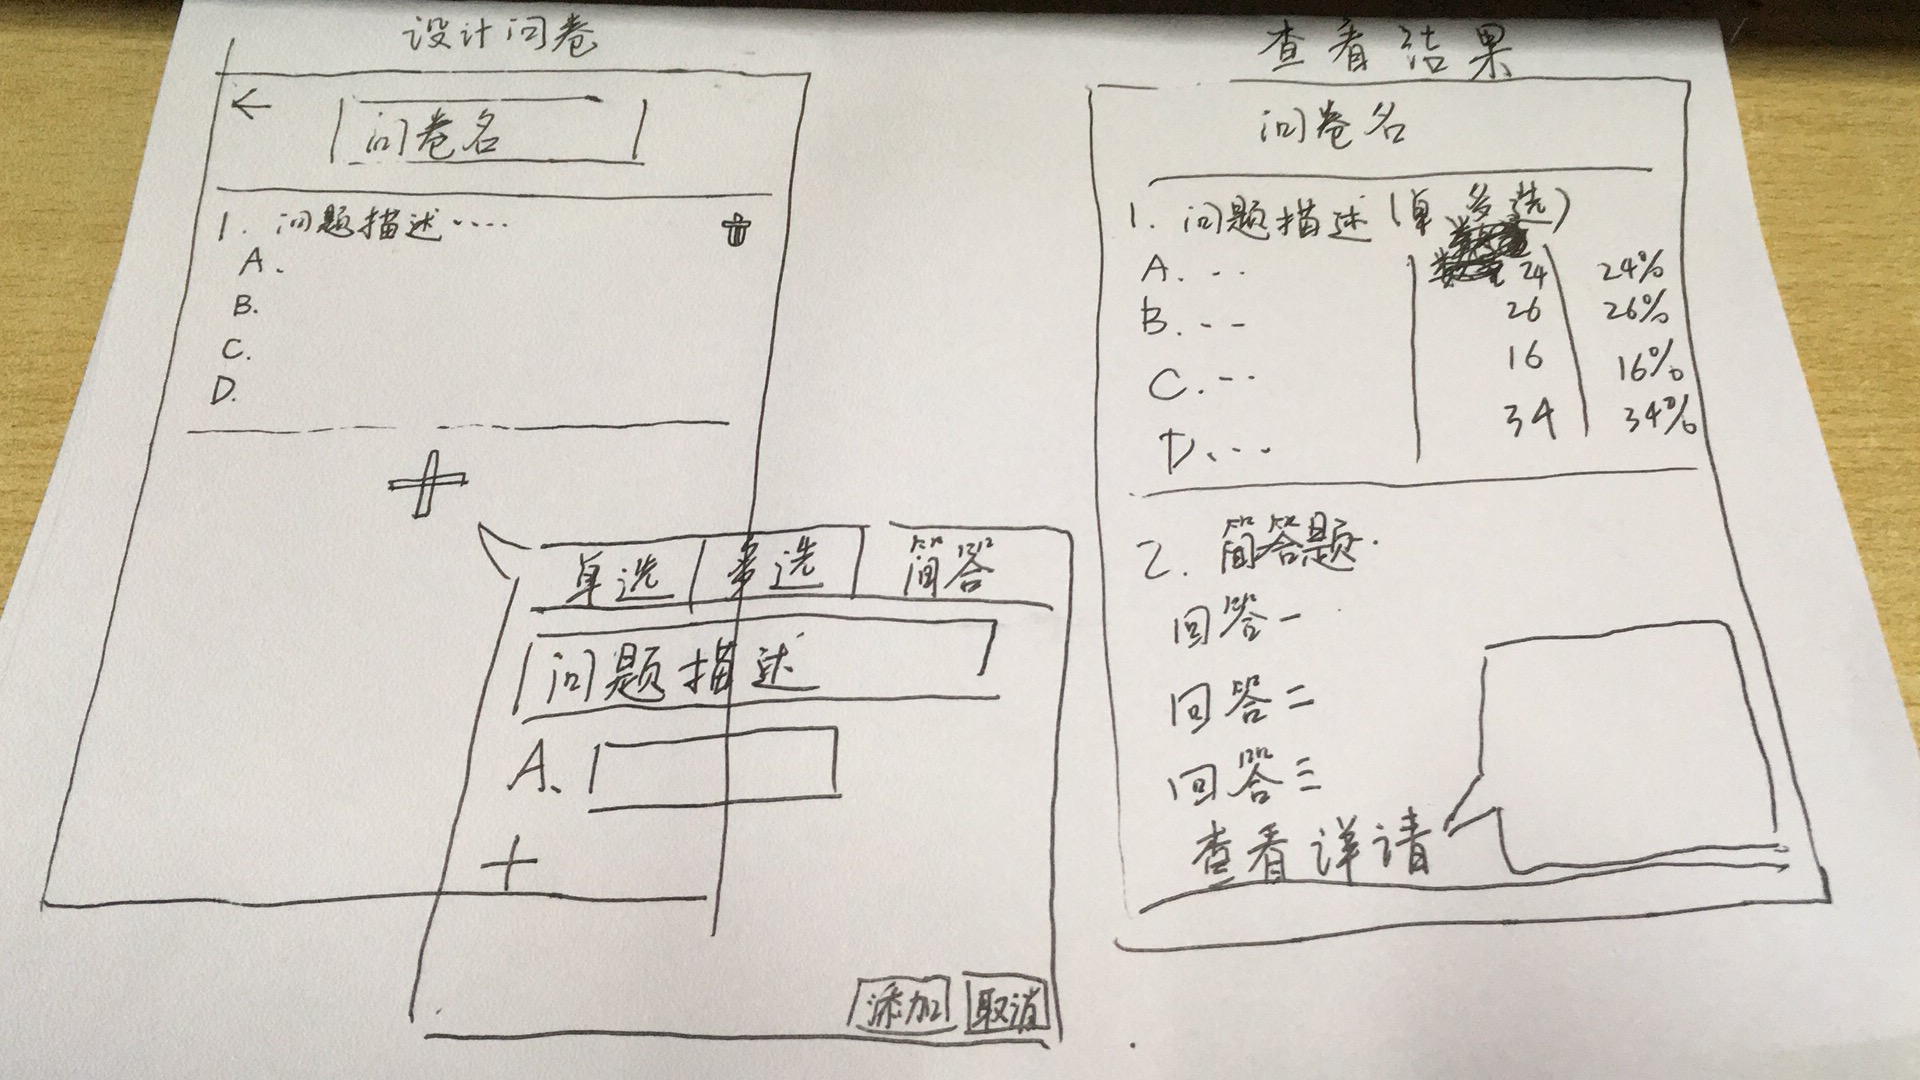 设计问卷
←
问卷名
1. 问题描述....
A.
B.
C.
D.
+
单选 多选 简答
问题描述
A.
+
添加 取消
查看结果
问卷名
1. 问题描述(单 多选)
A. -- 24 24%
B. -- 26 26%
C. -- 16 16%
D. --- 34 34%
2. 简答题.
回答一
回答二
回答三
查看详请